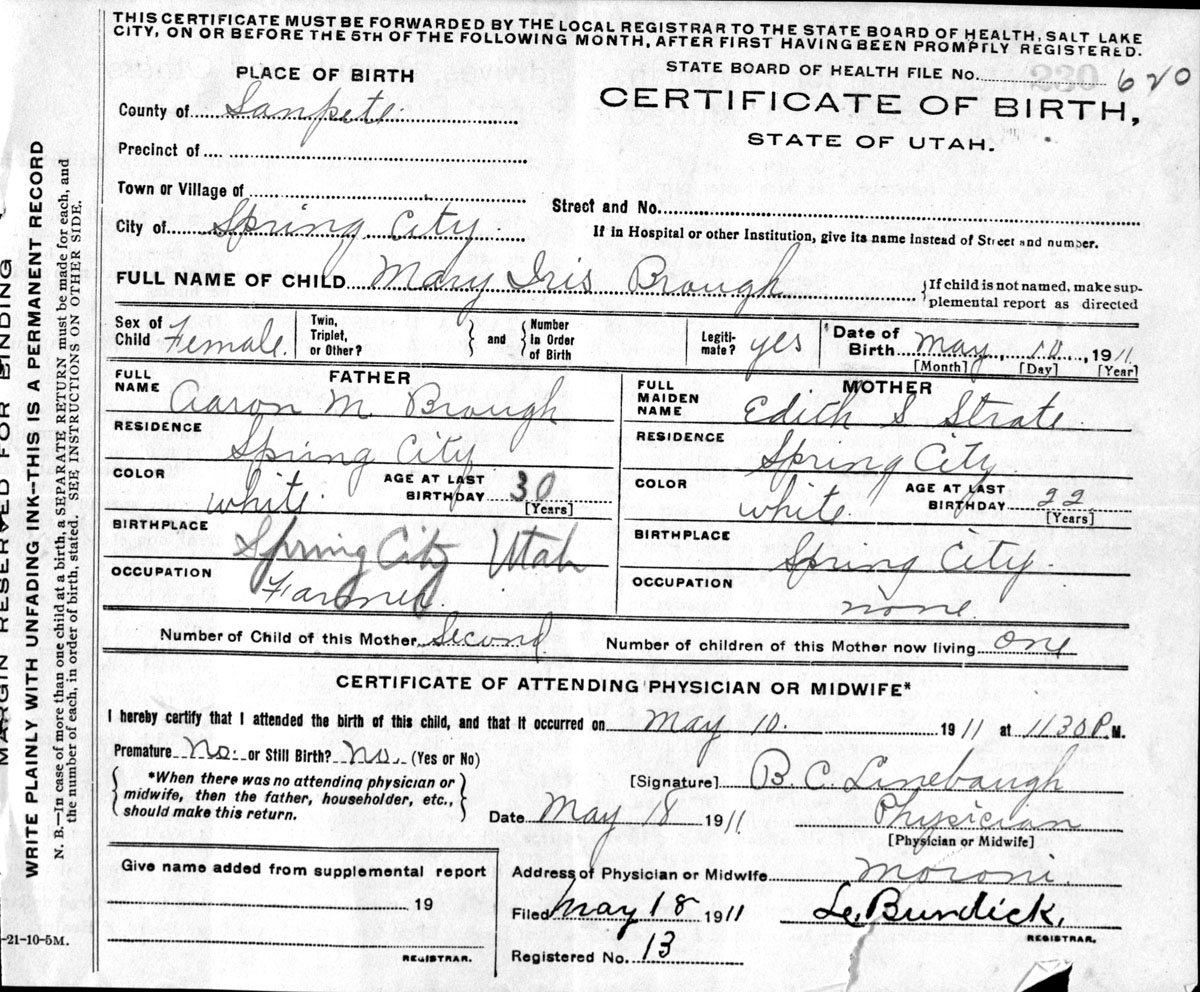 THIS CERTIFICATE MUST BE FORWARDED BY THE LOCAL REGISTRAR TO THE STATE BOARD OF HEALTH, SALT LAKE
CITY, ON OR BEFORE THE 5TH OF THE FOLLOWING MONTH, AFTER FIRST HAVING BEEN PROMPTLY REGISTERED.
PLACE OF BIRTH
STATE BOARD OF HEALTH FILE No. 620
County of Sanpete.
CERTIFICATE OF BIRTH,
STATE OF UTAH.
Precinct of
Town or Village of
Street and No.
City of Spring City.
If in Hospital or other Institution, give its name instead of Street and number.
FULL NAME OF CHILD Mary Iris Brough
{If child is not named, make sup-
plemental report as directed
Sex of
Child Female.
Twin,
Triplet,
or Other?
} and {
Number
In Order
of Birth
Legiti-
mate? yes
Date of
Birth May, 10, 1911
[Month] [Day] [Year]
FATHER
FULL
NAME Aaron M Brough
RESIDENCE Spring City
COLOR white.
AGE AT LAST
BIRTHDAY 30
[Years]
BIRTHPLACE Spring City Utah
OCCUPATION Farmer.
MOTHER
FULL
MAIDEN
NAME Edith S Strate.
RESIDENCE Spring City
COLOR white.
AGE AT LAST
BIRTHDAY 22
[Years]
BIRTHPLACE Spring City.
OCCUPATION none.
Number of Child of this Mother Second
Number of children of this Mother now living one
CERTIFICATE OF ATTENDING PHYSICIAN OR MIDWIFE*
I hereby certify that I attended the birth of this child, and that it occurred on May 10. 1911 at 1130 P.M.
Premature No. or Still Birth? No. (Yes or No)
{ *When there was no attending physician or
midwife, then the father, householder, etc.,
should make this return. }
[Signature] B. C. Linebaugh
Date May 18 1911
Physician
[Physician or Midwife]
Give name added from supplemental report
19
REGISTRAR.
Address of Physician or Midwife Moroni.
Filed May 18 1911 Burdick,
REGISTRAR.
Registered No. 13
-21-10-5M.
MARGIN RESERVED FOR BINDING
WRITE PLAINLY WITH UNFADING INK--THIS IS A PERMANENT RECORD
N. B.--In case of more than one child at a birth, a SEPARATE RETURN must be made for each, and
the number of each, in order of birth, stated. SEE INSTRUCTIONS ON OTHER SIDE.